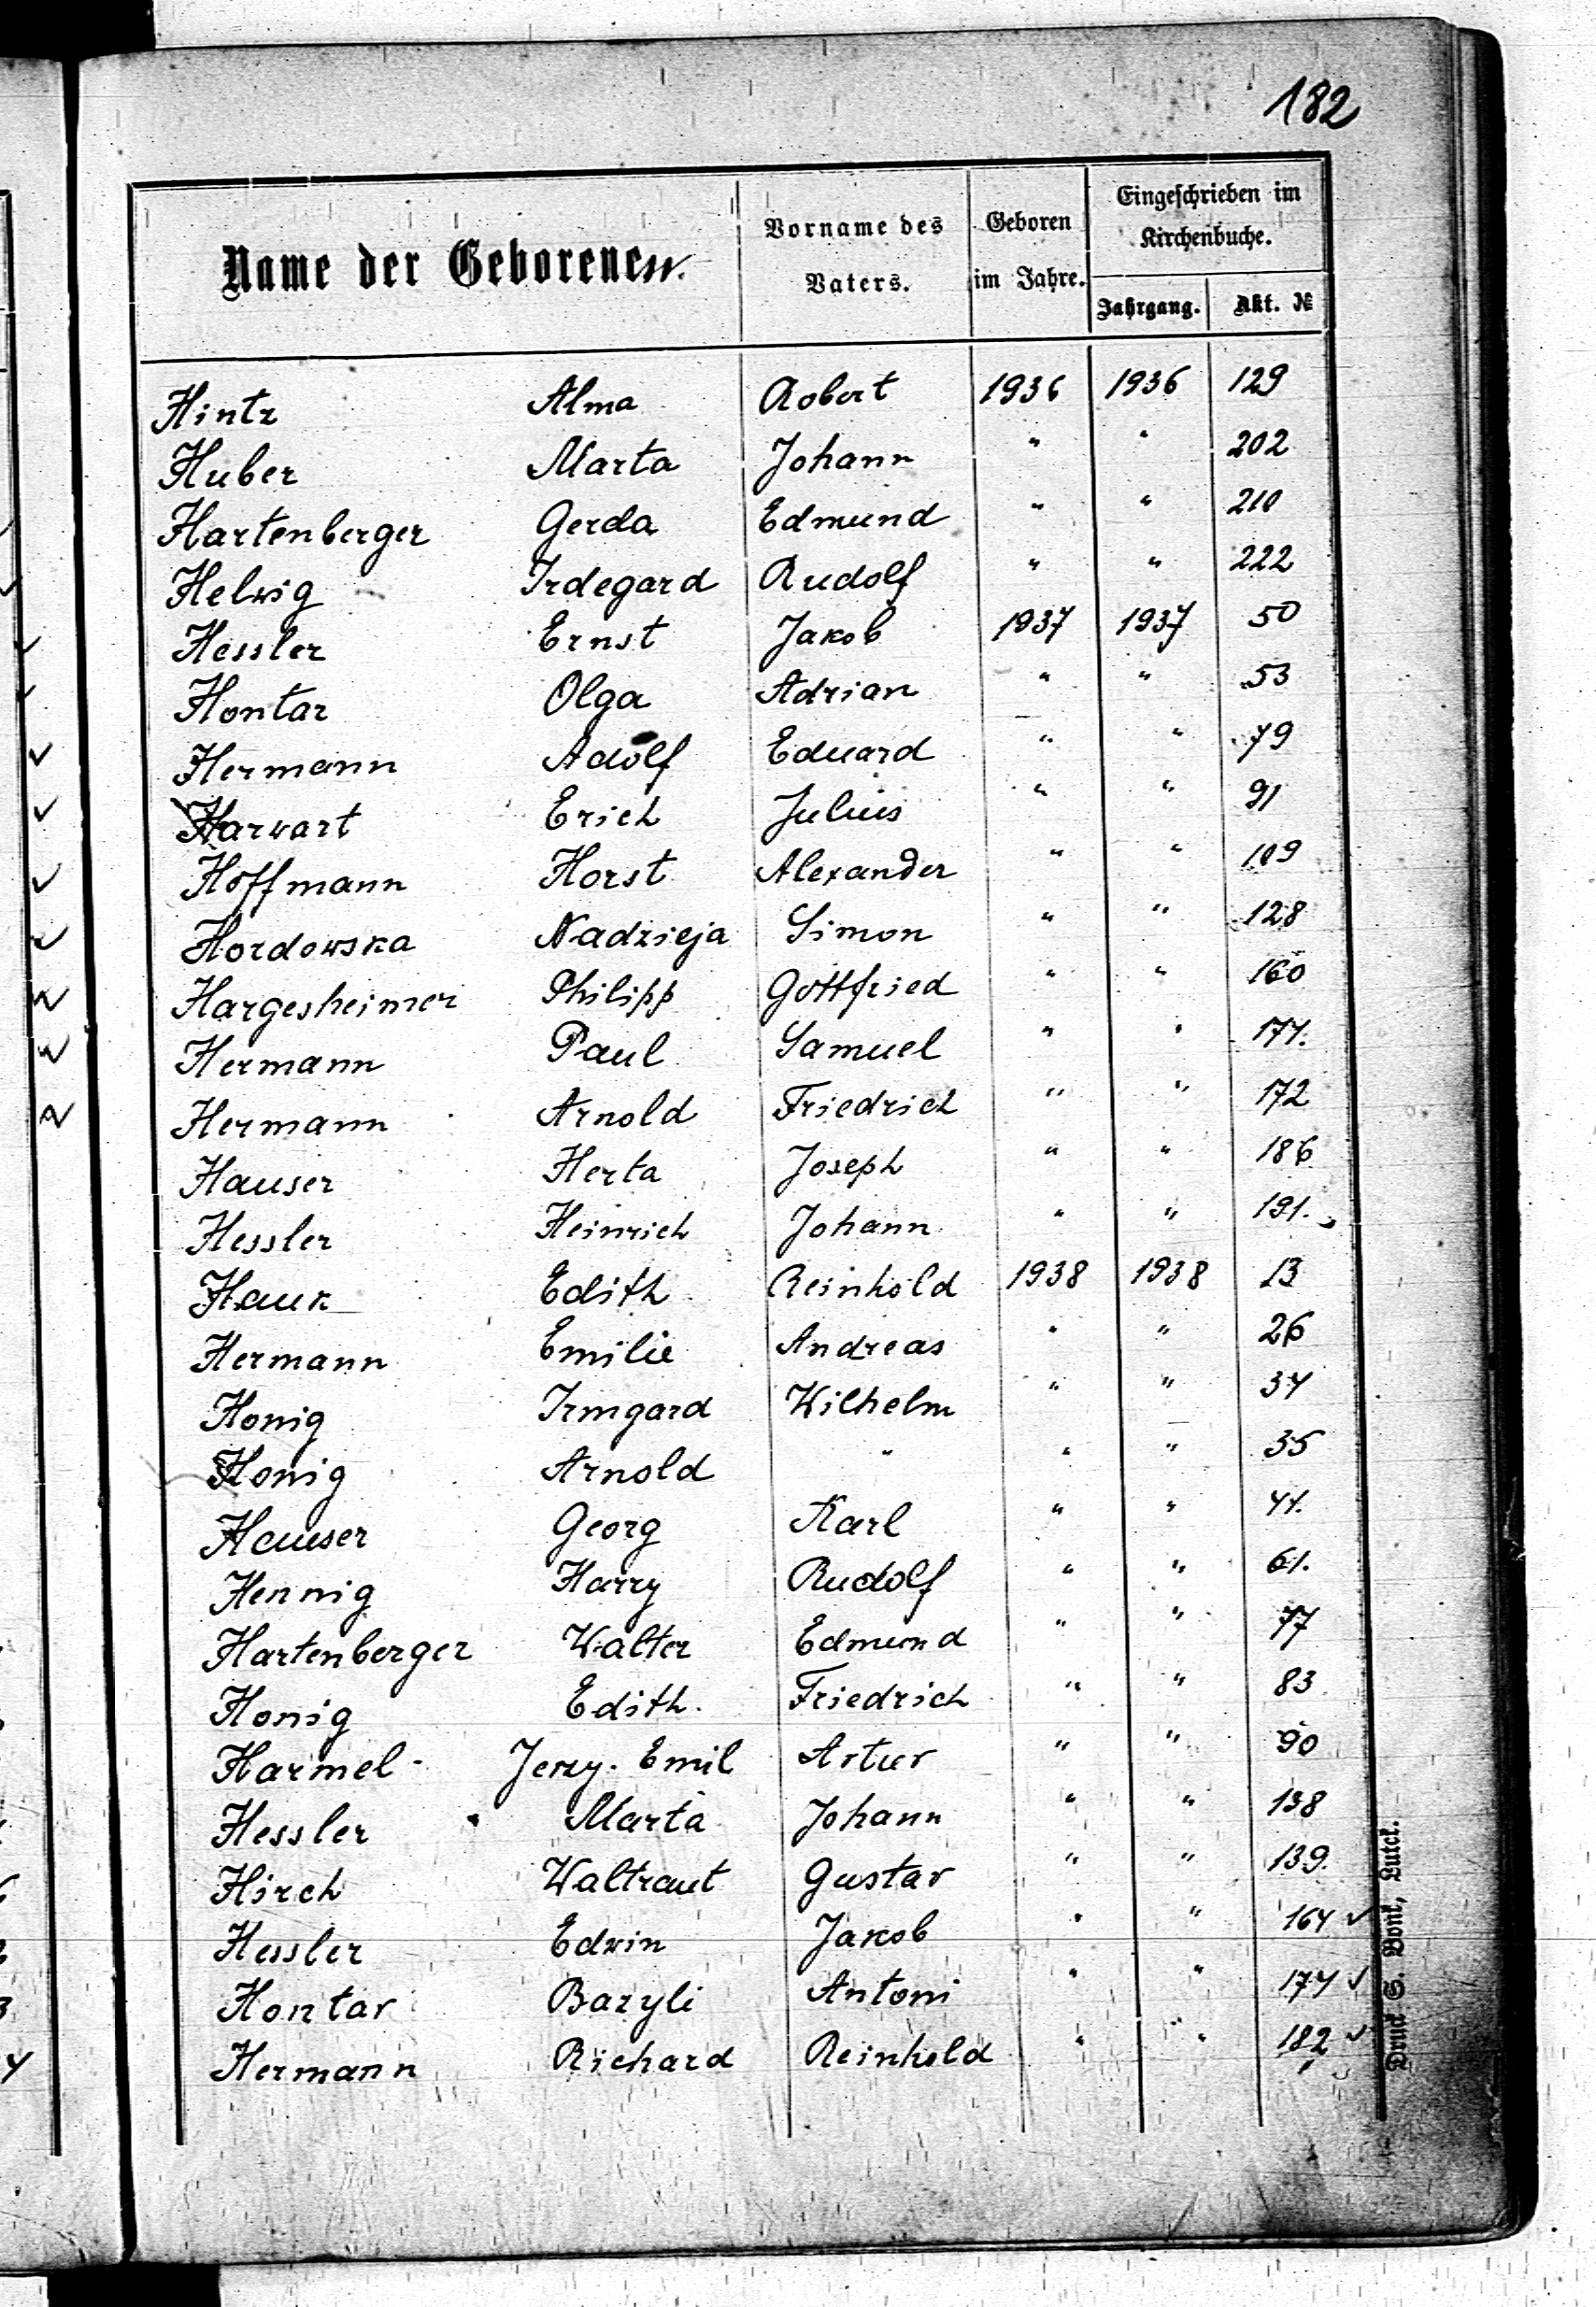 182
Name der Geborenen.
Vorname des Vaters.
Geboren im Jahre.
Eingeschrieben im Kirchenbuche.
Jahrgang. Akt. №
Hintz Alma Robert 1936 1936 129
Huber Marta Johann " " 202
Hartenberger Gerda Edmund " " 210
Helwig Irdegard Rudolf " " 222
Hessler Ernst Jakob 1937 1937 50
Hontar Olga Adrian " " 53
Hermann Adolf Eduard " " 79
Harwart Erich Julius " " 91
Hoffmann Horst Alexander " " 109
Hordowska Nadzieja Simon " " 128
Hargesheimer Philipp Gottfried " " 160
Hermann Paul Samuel " " 171.
Hermann Arnold Friedrich " " 172
Hauser Herta Joseph " " 186
Hessler Heinrich Johann " " 191.
Hauk Edith Reinhold 1938 1938 13
Hermann Emilie Andreas " " 26
Honig Irmgard Wilhelm " " 34
Honig Arnold " " " 35
Hauser Georg Karl " " 41.
Hennig Harry Rudolf " " 61.
Hartenberger Walter Edmund " " 77
Honig Edith. Friedrich " " 83
Harmel Jerzy. Emil Artur " " 90
Hessler Marta Johann " " 138
Hirch Waltraut Gustav " " 139.
Hessler Edwin Jakob " " 164 ✓
Hontar Bazyli Antoni " " 174 ✓
Hermann Richard Reinhold " " 182 ✓
Druck S. Bonk, Lutck.